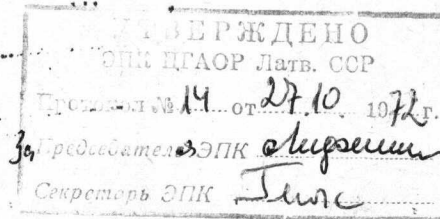 УТВЕРЖДЕНО
ЭПК ЦГАОР Латв. ССР
Протокол № 14 от 27.10. 1972 г.
За Председателя ЭПК
Секретарь ЭПК